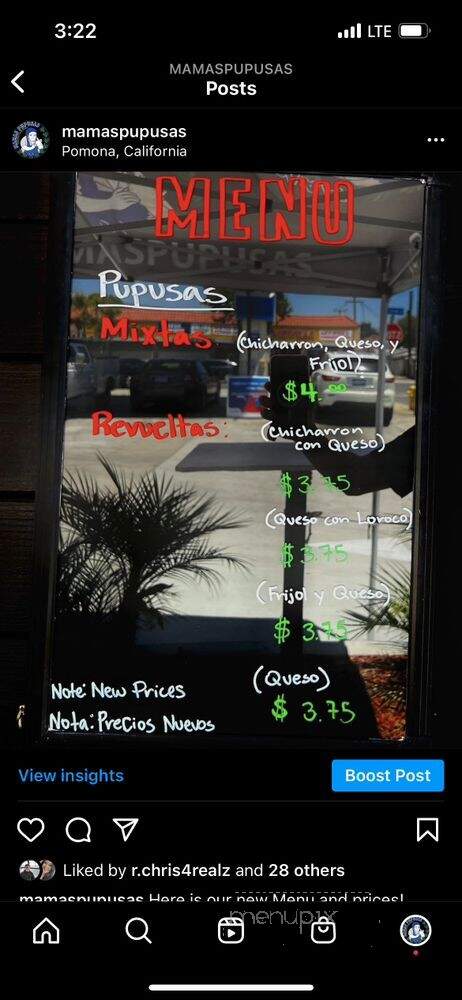 3:22
LTE
MAMASPUPUSAS
Posts
mamaspupusas
Pomona, California
MENU
MASPUPUSAS
Pupusas
Mixtas
(Chicharron, Queso, y
Frijol)
$4.00
Revueltas:
(Chicharron
con Queso)
$3.75
(Queso con Loroco)
$3.75
(Frijol y Queso)
$ 3.75
(Queso)
$ 3.75
Note: New Prices
Nota: Precios Nuevos
View insights
Boost Post
Liked by r.chris4realz and 28 others
mamaspupusas Here is our new Menu and prices!
menupix